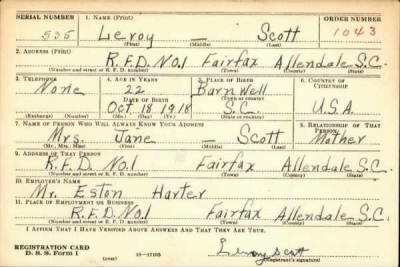 SERIAL NUMBER 1. NAME (Print) ORDER NUMBER
535 Leroy Scott 1043
(First) (Middle) (Last)
2. ADDRESS (Print)
R.F.D. No.1 Fairfax Allendale S.C.
(Number and street or R. F. D. number) (Town) (County) (State)
3. TELEPHONE 4. AGE IN YEARS 5. PLACE OF BIRTH 6. COUNTRY OF CITIZENSHIP
None 22 Barnwell
DATE OF BIRTH (Town or county)
Oct 18 1918 S.C. U.S.A.
(Exchange) (Number) (Mo.) (Day) (Yr.) (State or country)
7. NAME OF PERSON WHO WILL ALWAYS KNOW YOUR ADDRESS 8. RELATIONSHIP OF THAT PERSON
Mrs. Jane Scott Mother
(Mr., Mrs., Miss) (First) (Middle) (Last)
9. ADDRESS OF THAT PERSON
R.F.D. No.1 Fairfax Allendale S.C.
(Number and street or R. F. D. number) (Town) (County) (State)
10. EMPLOYER'S NAME
Mr. Eston Harter
11. PLACE OF EMPLOYMENT OR BUSINESS
R.F.D. No.1 Fairfax Allendale S.C.
(Number and street or R. F. D. number) (Town) (County) (State)
I AFFIRM THAT I HAVE VERIFIED ABOVE ANSWERS AND THAT THEY ARE TRUE.
REGISTRATION CARD Leroy Scott
D. S. S. Form 1 (over) (Registrant's signature)